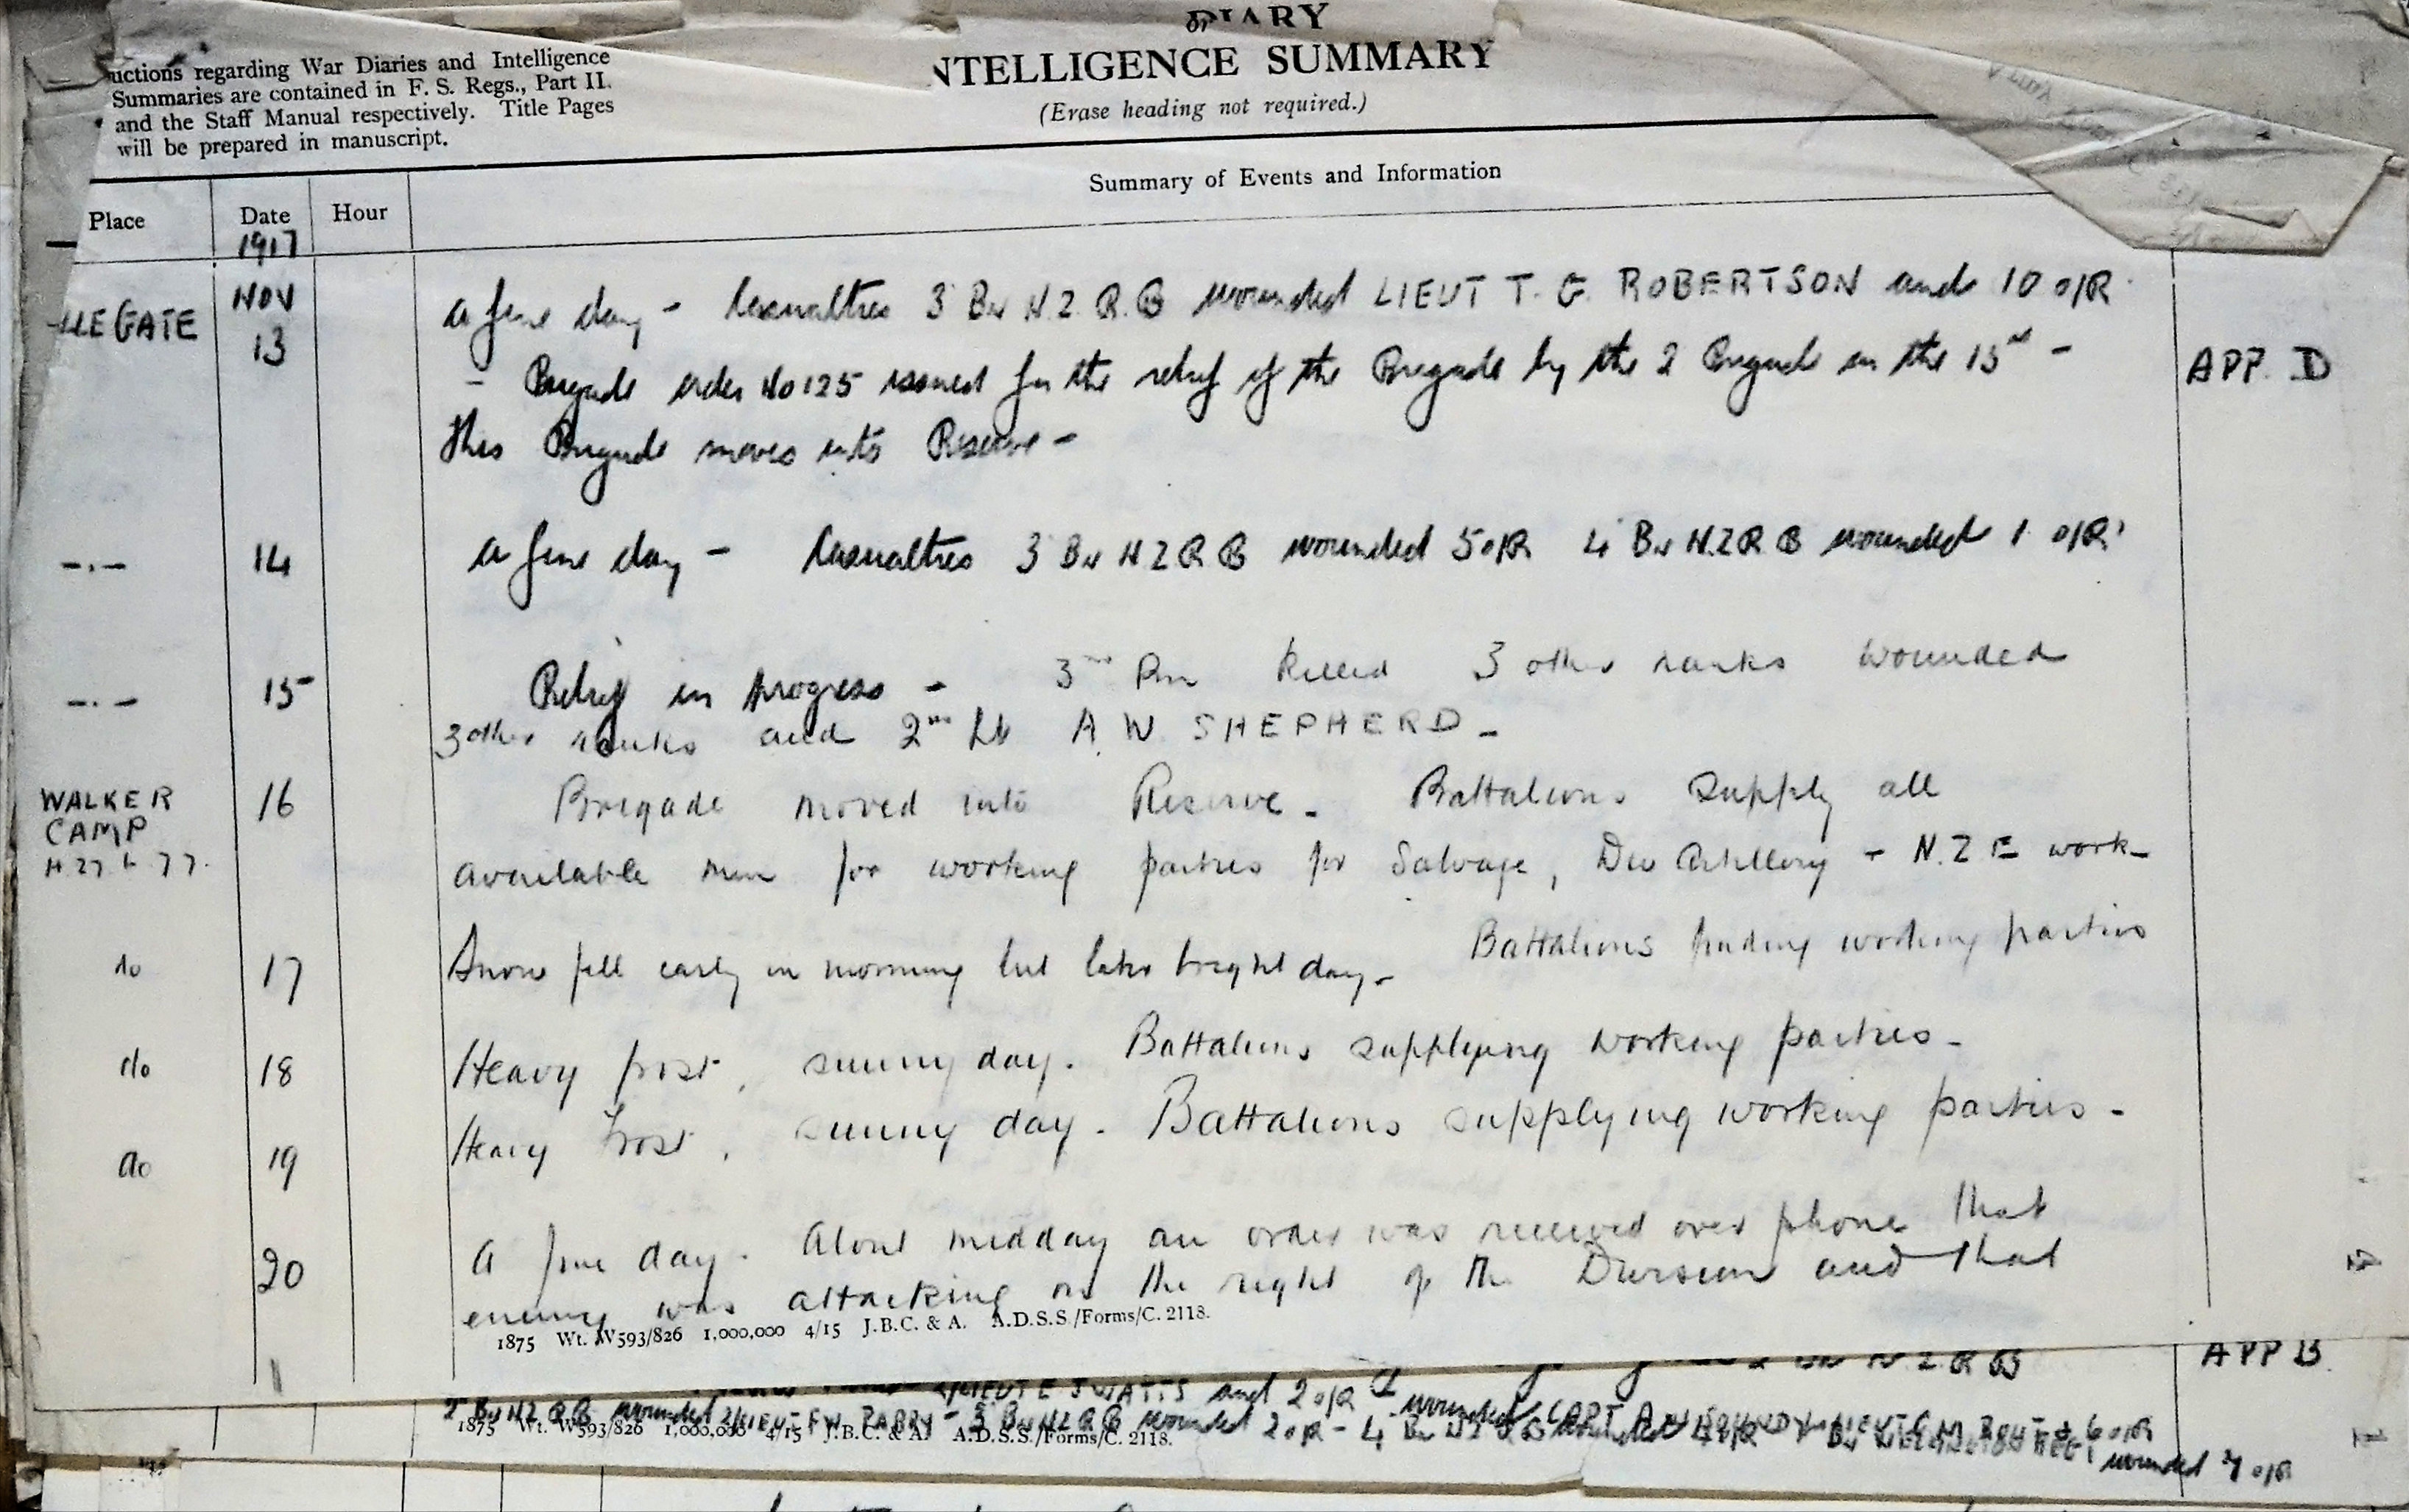 DIARY
or
NTELLIGENCE SUMMARY
(Erase heading not required.)
uctions regarding War Diaries and Intelligence
Summaries are contained in F. S. Regs., Part II.
and the Staff Manual respectively. Title Pages
will be prepared in manuscript.
Summary of Events and Information
Place Date Hour
1917
LLE GATE NOV 13 a fine day - Casualties 3 Bn N.Z.R.B wounded LIEUT T. G. ROBERTSON and 10 o/R
- Brigade order No 125 issued for the relief of the Brigade by the 2 Brigade on the 15th - APP. D
this Brigade moves into Reserve -
-.- 14 a fine day - Casualties 3 Bn N Z R B wounded 5 o/R 4 Bn N.Z R B wounded 1 o/R
-.- 15 Relief in progress - 3rd Bn killed 3 other ranks wounded
3 other ranks and 2nd Lt A.W. SHEPHERD -
WALKER CAMP 16 Brigade moved into Reserve - Battalions supply all
H 27 b 7 7. available men for working parties for Salvage, Div Artillery + N.Z E work -
do 17 Snow fell early in morning but later bright day - Battalions finding working parties
do 18 Heavy frost, sunny day. Battalions supplying working parties -
do 19 Heavy Frost, sunny day. Battalions supplying working parties -
20 A fine day. About midday an order was received over phone that
enemy was attacking on the right of the Division and that
1875 Wt. W593/826 1,000,000 4/15 J.B.C. & A. A.D.S.S./Forms/C. 2118.
N Z R B APP B
WATTS and 2 o/R
2 Bn N Z R B wounded 2/LIEUT F.W. PARRY - 3 Bn N Z R B wounded 2 o/R - 4 Bn wounded 6 o/R
1875 Wt. W593/826 1,000,000 4/15 J.B.C. & A. A.D.S.S./Forms/C. 2118.
wounded 7 o/R